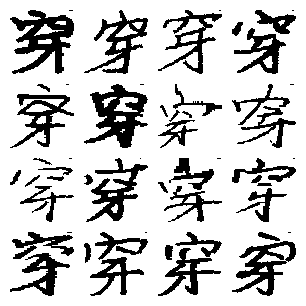 穿穿穿穿
穿穿穿穿
穿穿穿穿
穿穿穿穿